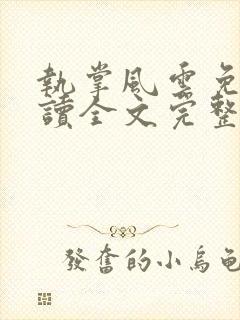 執掌風雲免
讀全文完整
發奮的小烏龜